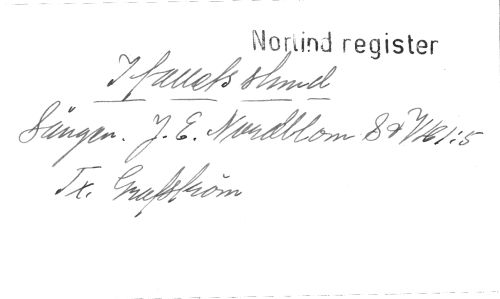 Norlind register
I fallets stund
Sången. J. E. Nordblom S & Vk 1:5
Tx. Grafström